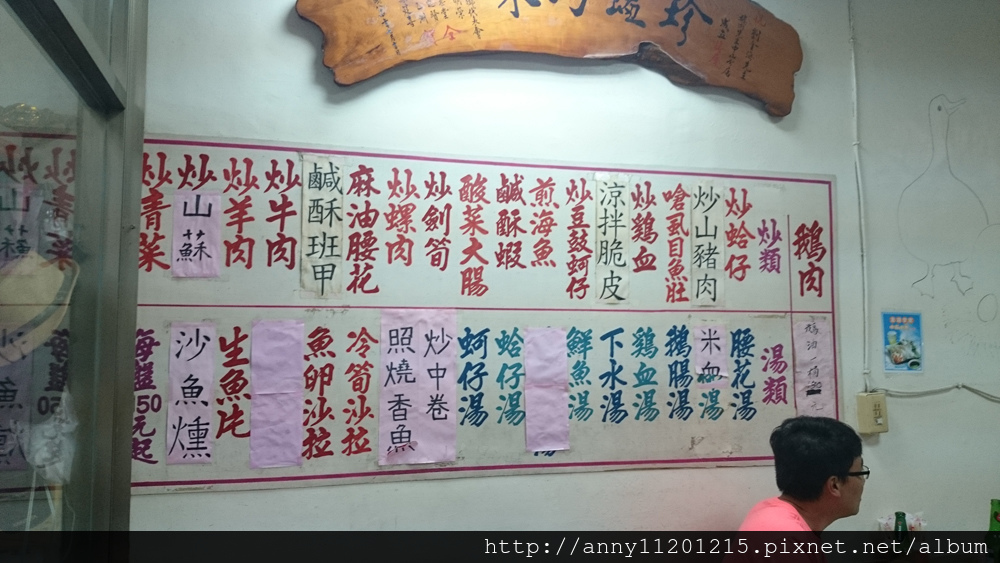 鵝肉
炒類
炒蛤仔
炒山豬肉
嗆虱目魚肚
炒鷄血
涼拌脆皮
炒豆鼓蚵仔
煎海魚
鹹酥蝦
酸菜大腸
炒劍筍
炒螺肉
麻油腰花
鹹酥班甲
炒牛肉
炒羊肉
炒山蘇
炒青菜
湯類
腰花湯
米血湯
鵝腸湯
鷄血湯
下水湯
鮮魚湯
蛤仔湯
蚵仔湯
炒中卷
照燒香魚
冷筍沙拉
魚卵沙拉
生魚片
沙魚燻
海鱺50元起
http://anny11201215.pixnet.net/album